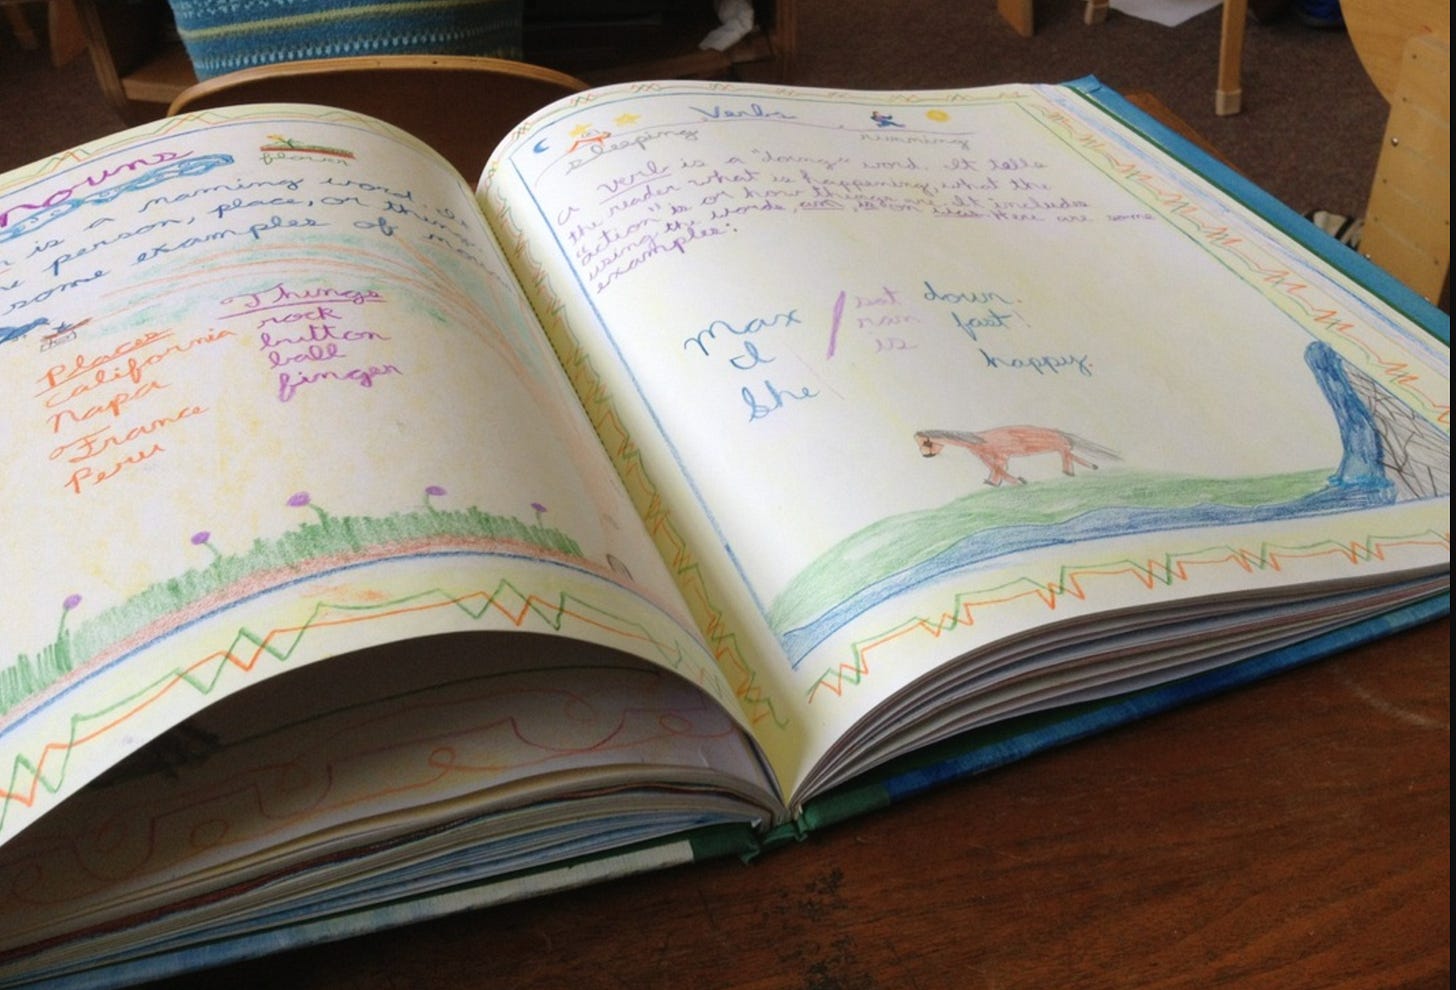 nouns
flower
is a naming word. It
person, place, or thing.
some examples of
Places
California
Napa
France
Peru
Things
rock
button
ball
finger
Verbs
sleeping
running
A verb is a "doing" word. It tells
the reader what is happening, what the
"action" is or how things are. It includes
using the words, am, is, Here are some
examples:
Max / sat down.
I ran fast!
She is happy.